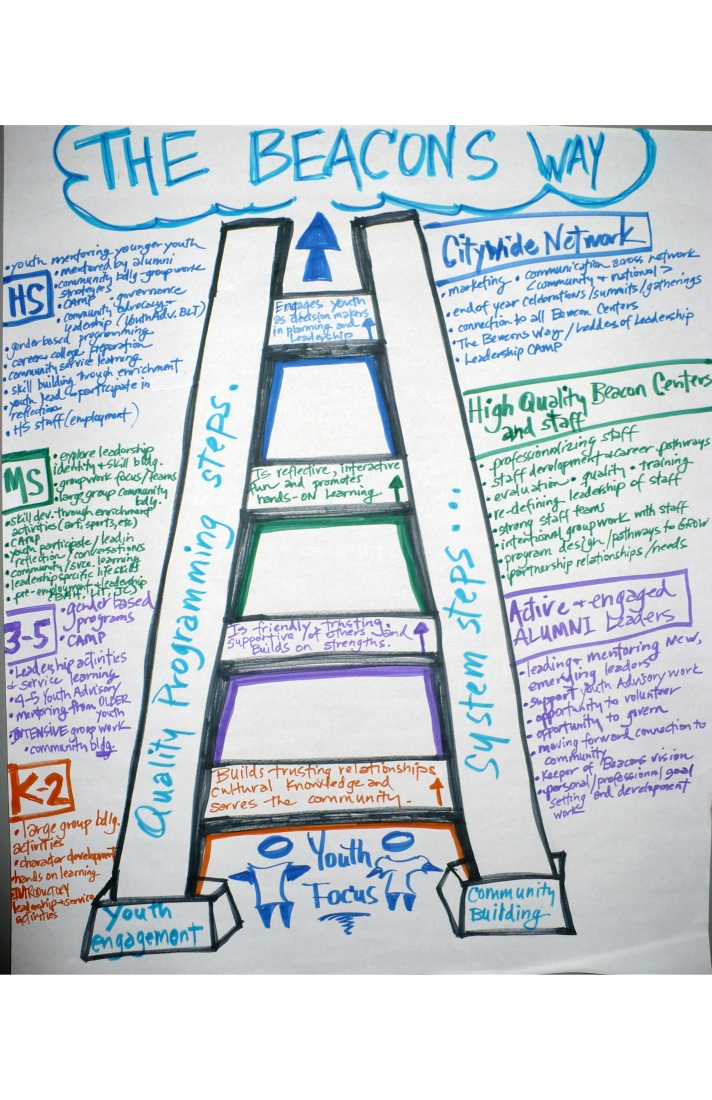 THE BEACONS WAY
• youth mentoring younger youth
• mentored by alumni
HS
• community bdlg group work
strategies
• CAMP
• governance
• community advocacy +
leadership (Youth Adv. BLT)
gender based programming
• career + college preparation
• community service learning
• skill building through enrichment
• youth lead + participate in
reflection
• HS staff (employment)
MS
• explore leadership
identity + skill bldg.
• groupwork focus/teams
• large group community
bdlg.
• skill dev. through enrichment
activities (art, sports, etc)
• CAMP
• youth participate/lead in
reflection/conversations
• community/svce. learning
• leadership specific life skills
• pre-employment + leadership
3-5
• gender based
programs
• CAMP
• Leadership activities
+ service learning
• 4-5 Youth Advisory
• mentoring from OLDER
youth
• INTENSIVE group work
• community bldg.
K-2
• large group bdlg.
activities
• character development
hands on learning
INTRODUCTORY
leadership + service
activities
Quality Programming steps.
Engages youth
as decision makers
in planning and
leadership
Is reflective, interactive
fun and promotes
hands-ON Learning
Is friendly, trusting,
supportive of others and
Builds on strengths.
Builds trusting relationships,
cultural knowledge and
serves the community.
System steps...
Youth
Focus
Youth
engagement
Community
Building
Citywide Network
• marketing • communication across network
community + national >
• end of year celebrations/summits/gatherings
• connection to all Beacon Centers
• The Beacons Way/Ladder of Leadership
• Leadership CAMP
High Quality Beacon Centers
and staff
• professionalizing staff
• staff development + career pathways
• evaluation • quality • training
• re-defining leadership of staff
• strong staff teams
• intentional groupwork with staff
• program design/pathways to GROW
• partnership relationships/needs
Active + engaged
ALUMNI Leaders
• leading + mentoring new,
emerging leaders
• support Youth Advisory work
• opportunity to volunteer
• opportunity to govern
• moving forward connection to
community
• Keeper of Beacons vision
• personal/professional goal
setting and development
work